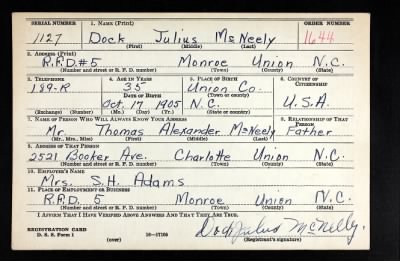 SERIAL NUMBER 1. NAME (Print) ORDER NUMBER
1127 Dock Julius McNeely 1644
(First) (Middle) (Last)
2. ADDRESS (Print)
R.F.D.#5 Monroe Union N.C.
(Number and street or R. F. D. number) (Town) (County) (State)
3. TELEPHONE 4. AGE IN YEARS 5. PLACE OF BIRTH 6. COUNTRY OF CITIZENSHIP
199-R 35 Union Co. U.S.A.
DATE OF BIRTH (Town or county)
Oct. 17 1905 N.C.
(Exchange) (Number) (Mo.) (Day) (Yr.) (State or country)
7. NAME OF PERSON WHO WILL ALWAYS KNOW YOUR ADDRESS 8. RELATIONSHIP OF THAT PERSON
Mr. Thomas Alexander McNeely Father
(Mr., Mrs., Miss) (First) (Middle) (Last)
9. ADDRESS OF THAT PERSON
2521 Booker Ave. Charlotte Union N.C.
(Number and street or R. F. D. number) (Town) (County) (State)
10. EMPLOYER'S NAME
Mrs. S.H. Adams
11. PLACE OF EMPLOYMENT OR BUSINESS
R.F.D. 5 Monroe Union N.C.
(Number and street or R. F. D. number) (Town) (County) (State)
I AFFIRM THAT I HAVE VERIFIED ABOVE ANSWERS AND THAT THEY ARE TRUE.
REGISTRATION CARD
D. S. S. Form 1 (over) 16—17105 Dock Julius McNelly.
(Registrant's signature)